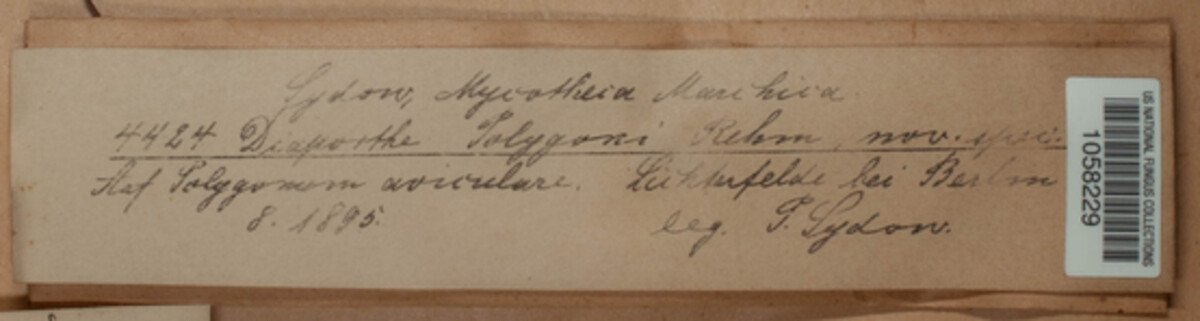 Sydow, Mycotheca Marchica.
4424 Diaporthe Polygoni Rehm, nov. spec.
Auf Polygonum aviculare. Lichterfelde bei Berlin
8. 1895. leg. P. Sydow.
US NATIONAL FUNGUS COLLECTIONS
1058229